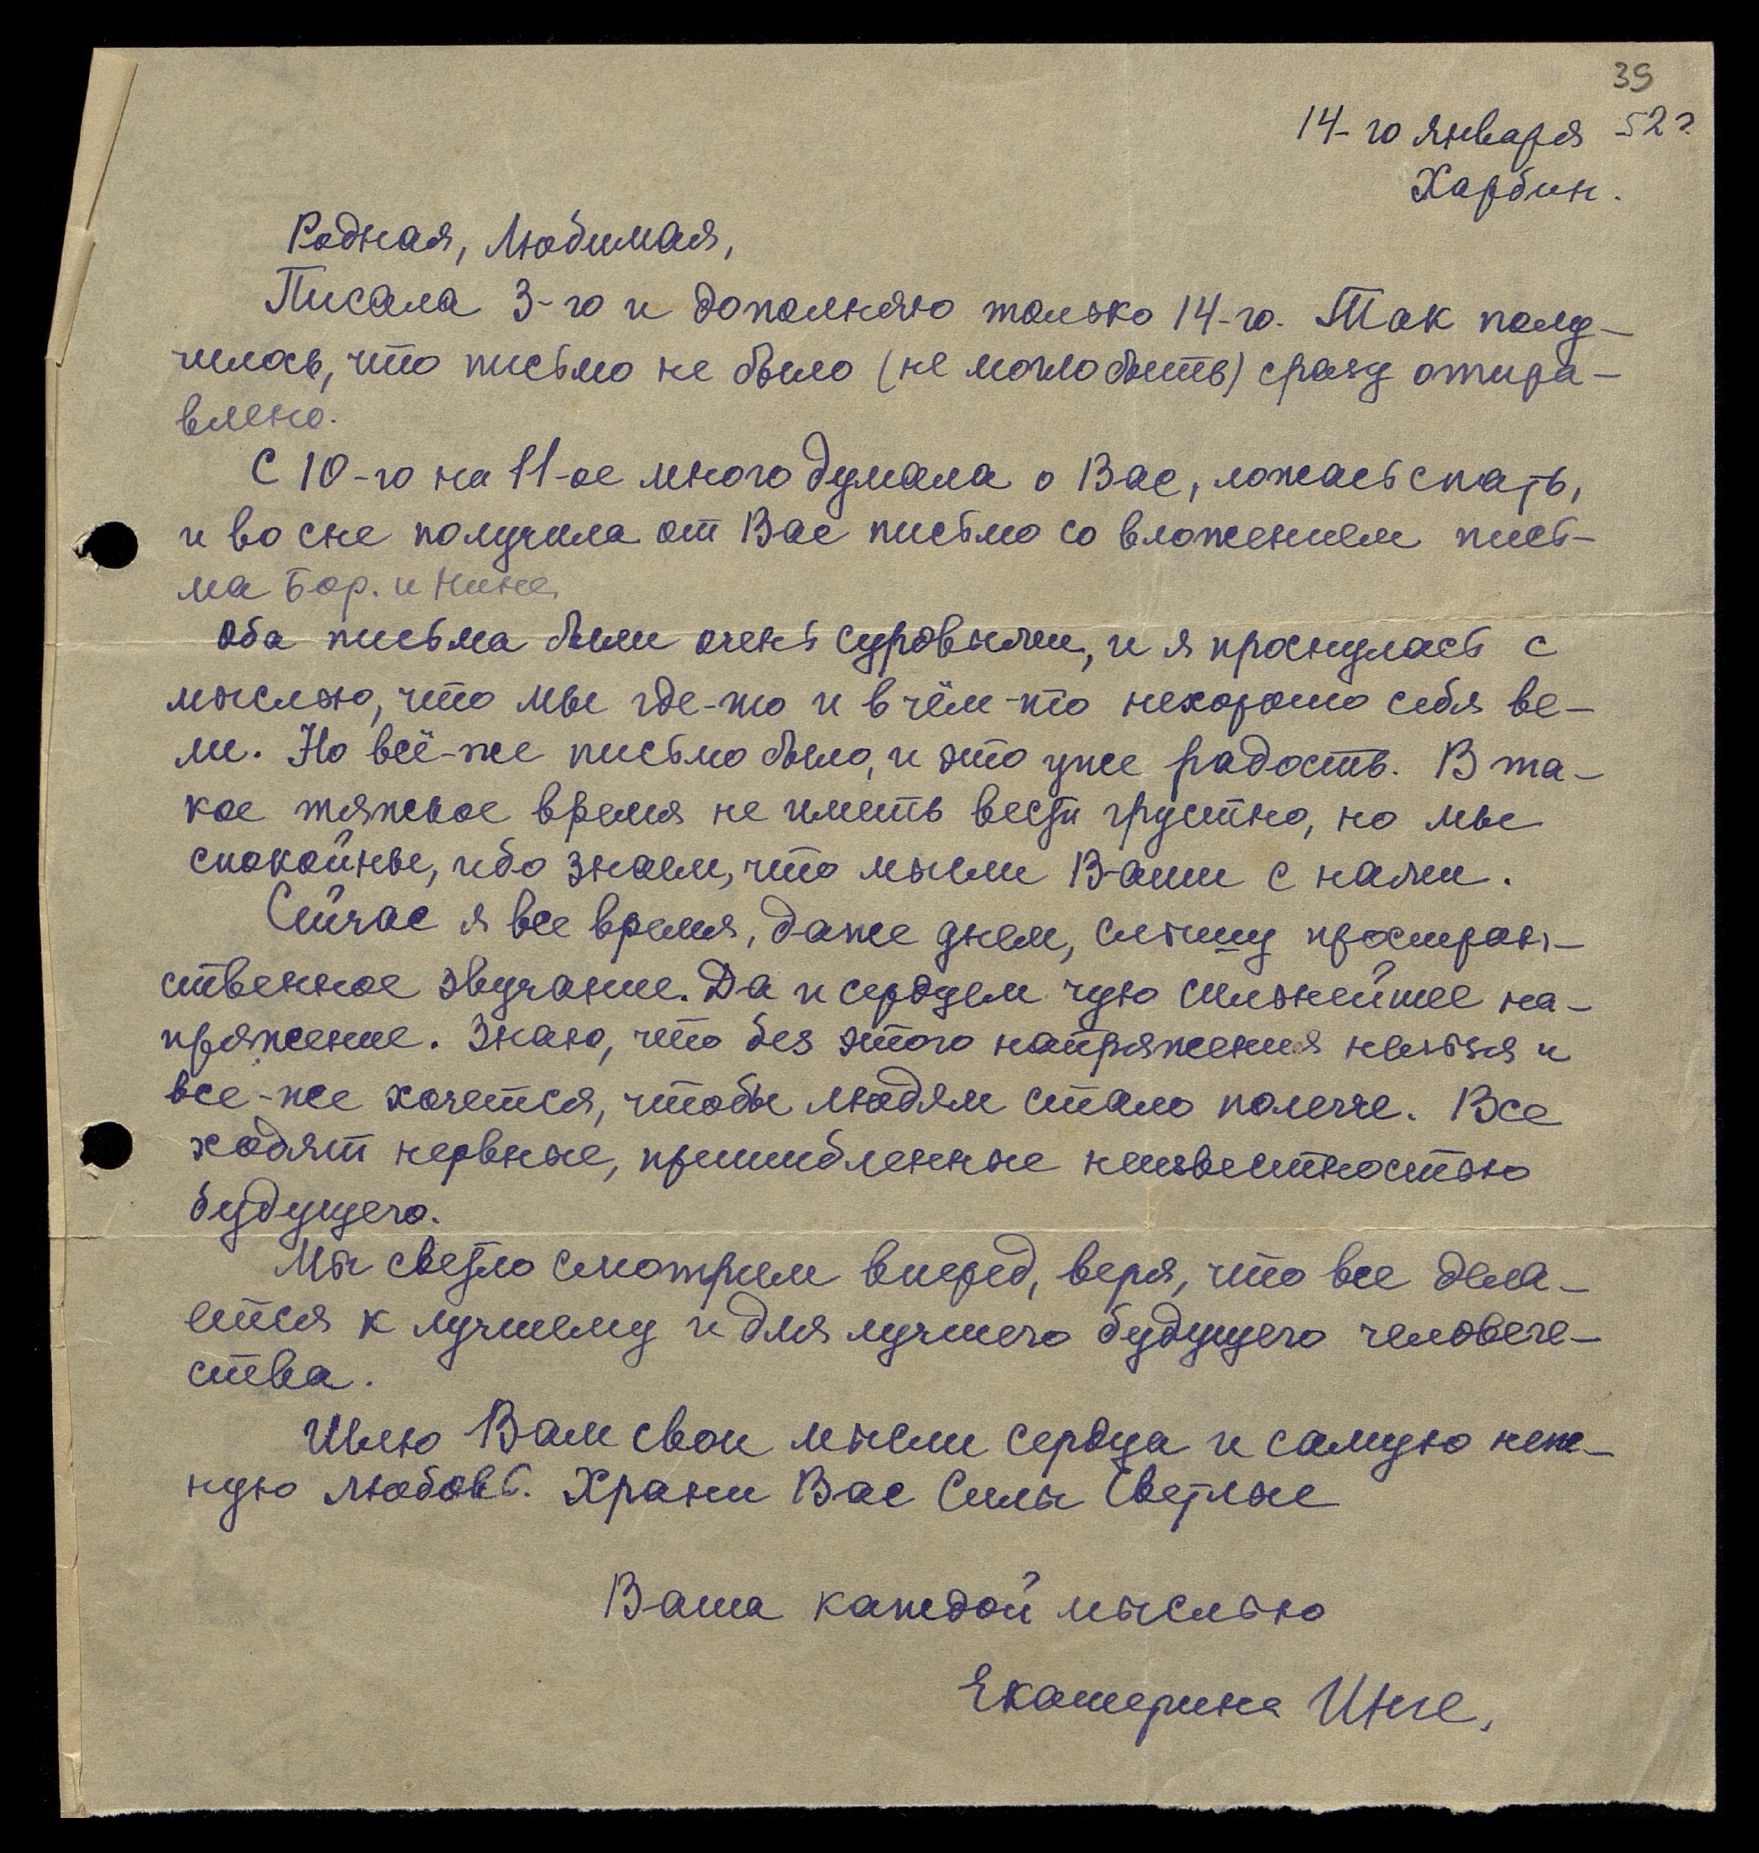 39
14-го января 52 г.
Харбин.
Родная, Любимая,
Писала 3-го и дополняю только 14-го. Так полу-
чилось, что письмо не было (не могло быть) сразу отпра-
влено.
С 10-го на 11-ое много думала о Вас, ложась спать,
и во сне получила от Вас письмо со вложением пись-
ма Бор. и Нине.
Оба письма были очень суровыми, и я проснулась с
мыслью, что мы где-то и в чём-то нехорошо себя ве-
ли. Но всё-же письмо было, и это уже радость. В та-
кое тяжкое время не иметь вести грустно, но мы
спокойны, ибо знаем, что мысли Ваши с нами.
Сейчас я все время, даже днем, слышу пространст-
ственное звучание. Да и сердцем чую сильнейшее на-
пряжение. Знаю, что без этого напряжения нельзя и
все-же хочется, чтобы людям стало полегче. Все
ходят нервные, пришибленные неизвестностью
будущего.
Мы светло смотрим вперед, веря, что все дела-
ется к лучшему и для лучшего будущего человече-
ства.
Шлю Вам свои мысли сердца и самую неж-
ную любовь. Храни Вас Силы Светлые
Ваша каждой мыслью
Екатерина Инге.